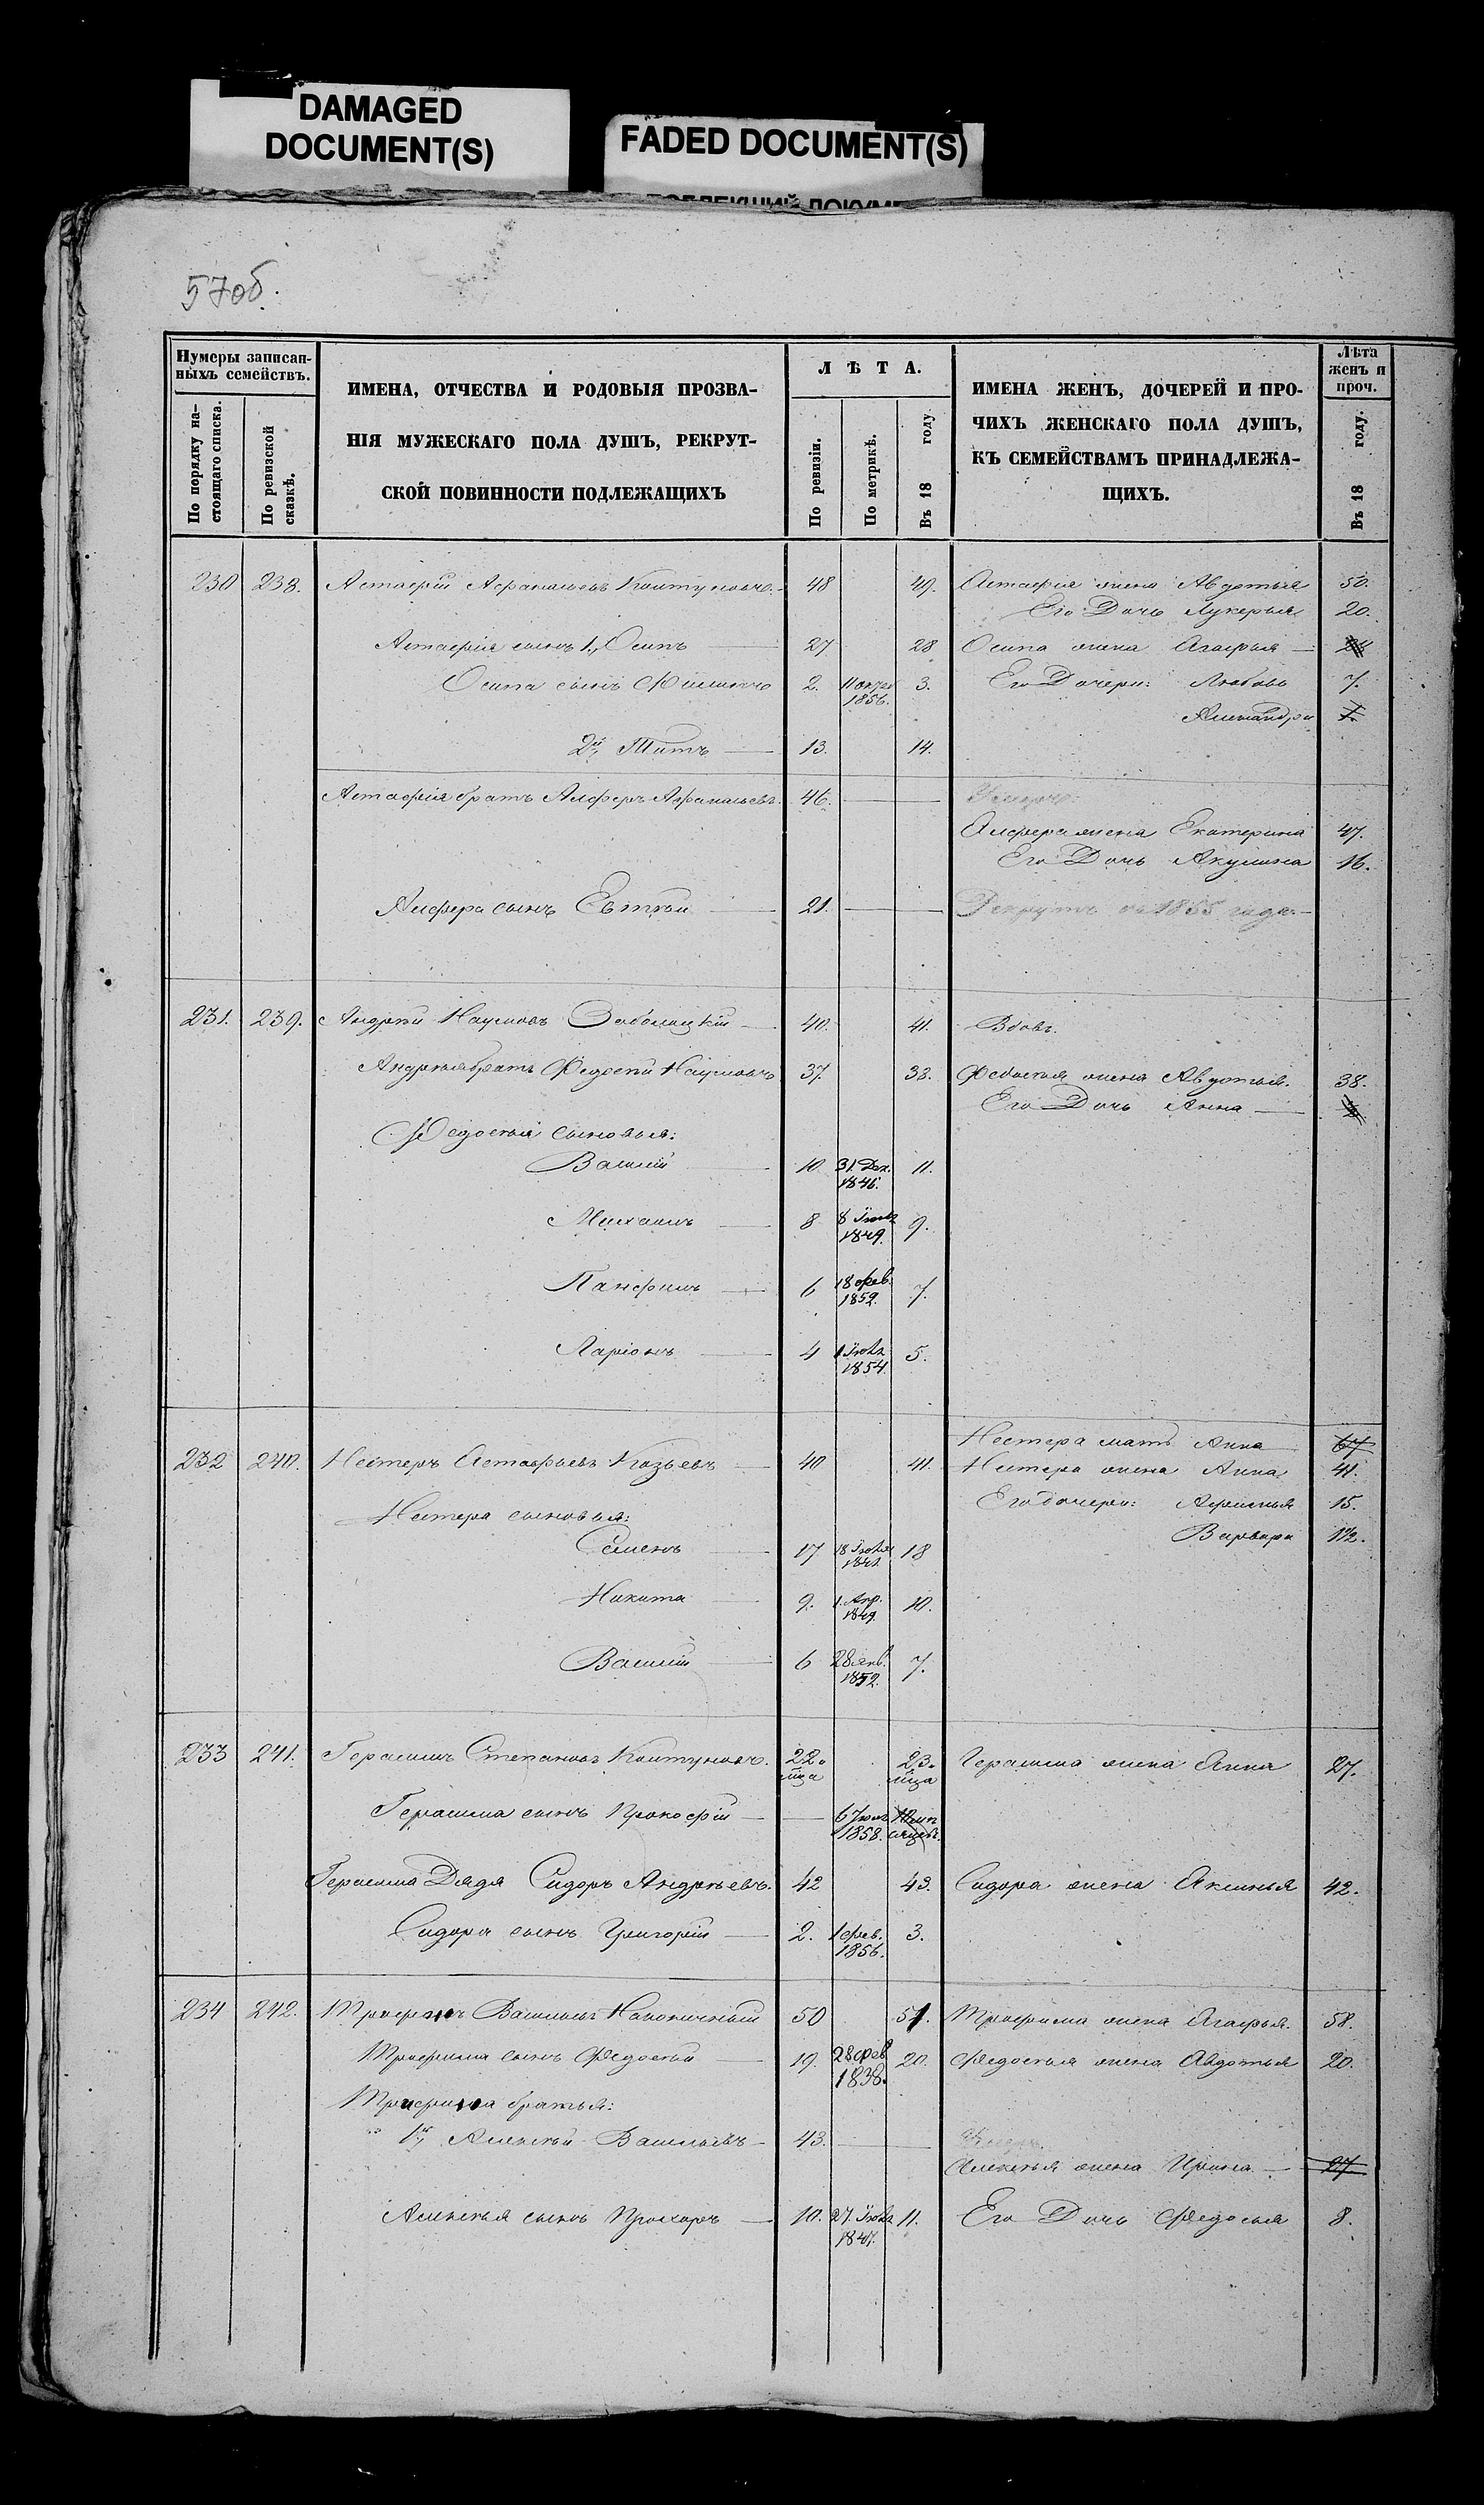 DAMAGED
DOCUMENT(S)
FADED DOCUMENT(S)
57об.
Нумеры записан-
ныхъ семействъ.
По порядку на-
стоящаго списка.
По ревизской
сказкѣ.
ИМЕНА, ОТЧЕСТВА И РОДОВЫЯ ПРОЗВА-
НІЯ МУЖЕСКАГО ПОЛА ДУШЪ, РЕКРУТ-
СКОЙ ПОВИННОСТИ ПОДЛЕЖАЩИХЪ
ЛѢТА.
По ревизіи.
По метрикѣ.
Въ 18 году
ИМЕНА ЖЕНЪ, ДОЧЕРЕЙ И ПРО-
ЧИХЪ ЖЕНСКАГО ПОЛА ДУШЪ,
КЪ СЕМЕЙСТВАМЪ ПРИНАДЛЕЖА-
ЩИХЪ.
Лѣта
женъ и
проч.
Въ 18 году.
230 238. Астафій Афанасьевъ 48 49. Астафія жена Авдотья 50.
Его Дочь Лукерья 20.
Астафія сынъ 1, Осипъ 27 28 Осипа жена Агафья
Осипа сынъ Филиппъ 2. 11 1856. 3. Его Дочери: Любовь 7.
Александра 1.
2й Титъ 13. 14.
Астафія братъ Алферъ Афанасьевъ. 46. Умеръ.
Алфера жена Екатерина 47.
Его Дочь Акулина 16.
Алфера сынъ Евтѣй 21. Рекрутъ 1855 года.
231. 239. Андрей Наумовъ 40. 41. Вдовъ.
Андрея братъ Федосѣй Наумовъ 37. 38. Федосѣя жена Авдотья. 38.
Его Дочь Анна
Федосѣя сыновья:
Василій 10 31. Дек. 1846. 11.
Михаилъ 8 8 1849. 9.
Панфилъ 6 18 фев. 1852. 7.
Ларіонъ 4 1 1854. 5.
Нестера мать Анна 67
232 240. Нестеръ Астафьевъ 40 41. Нестера жена Анна 41.
Его дочери: Афимья 15.
Нестера сыновья:
Варвара 1 1/2.
Семенъ 17 18 1841 18
Никита 9. 1. Апр. 1849. 10.
Василій 6 28 янв. 1852. 7.
233 241. Герасимъ Степановъ 22. 23. Герасима жена Анна 27.
Герасима сынъ Прокофій 6 1858.
Герасима Дядя Сидоръ Андреевъ. 42 43. Сидора жена Аксинья 42.
Сидора сынъ Григорій 2. 1 фев. 1856. 3.
234 242. Трофимъ Васильевъ 50 51. Трофима жена Агафья. 58.
Трофима сынъ Федосѣй 19. 28 фев 1838. 20. Федосѣя жена Авдотья 20.
Трофима братья:
1й Алексѣй Васильевъ 43. Умеръ.
Алексѣя жена Ирина 27
Алексѣя сынъ Прохоръ 10. 27. 1847. 11. Его Дочь Федосья 8.